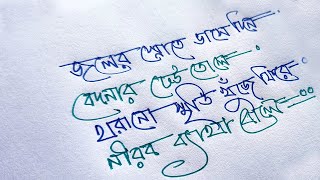 জলের স্রোতে ভাসে দিন
বেদনার ঢেউ তোলে.
হারানো স্মৃতি খুঁজে ফিরে
নীরব ব্যাথা বোলে...